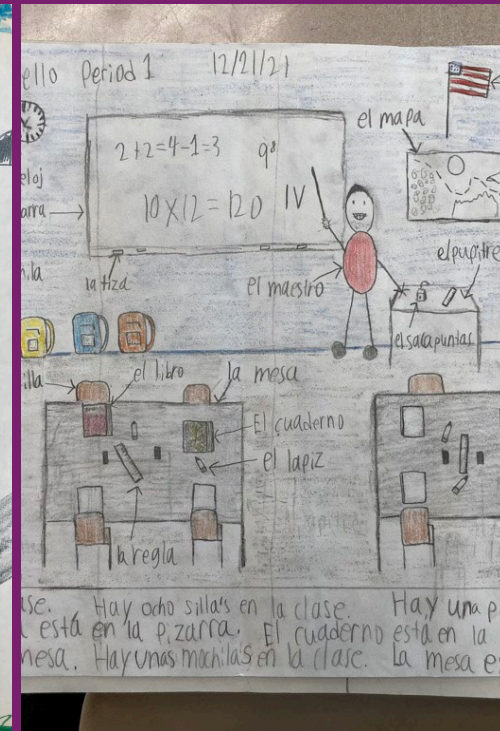 ello Period 1 12/21/21
el mapa
2+2=4-1=3 9⁸
10X12=120 IV
eloj
arra
hila
la tiza
el maestro
el pupitre
el sacapuntas
illa
el libro
la mesa
El cuaderno
el lapiz
la regla
ase. Hay ocho silla's en la clase. Hay una p
a está en la pizarra. El cuaderno está en la
mesa. Hay unas mochila's en la clase. La mesa e